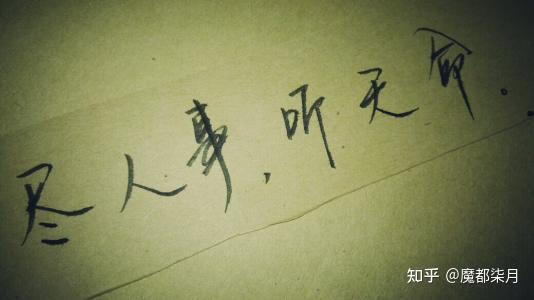 尽人事,听天命。
知乎 @魔都柒月